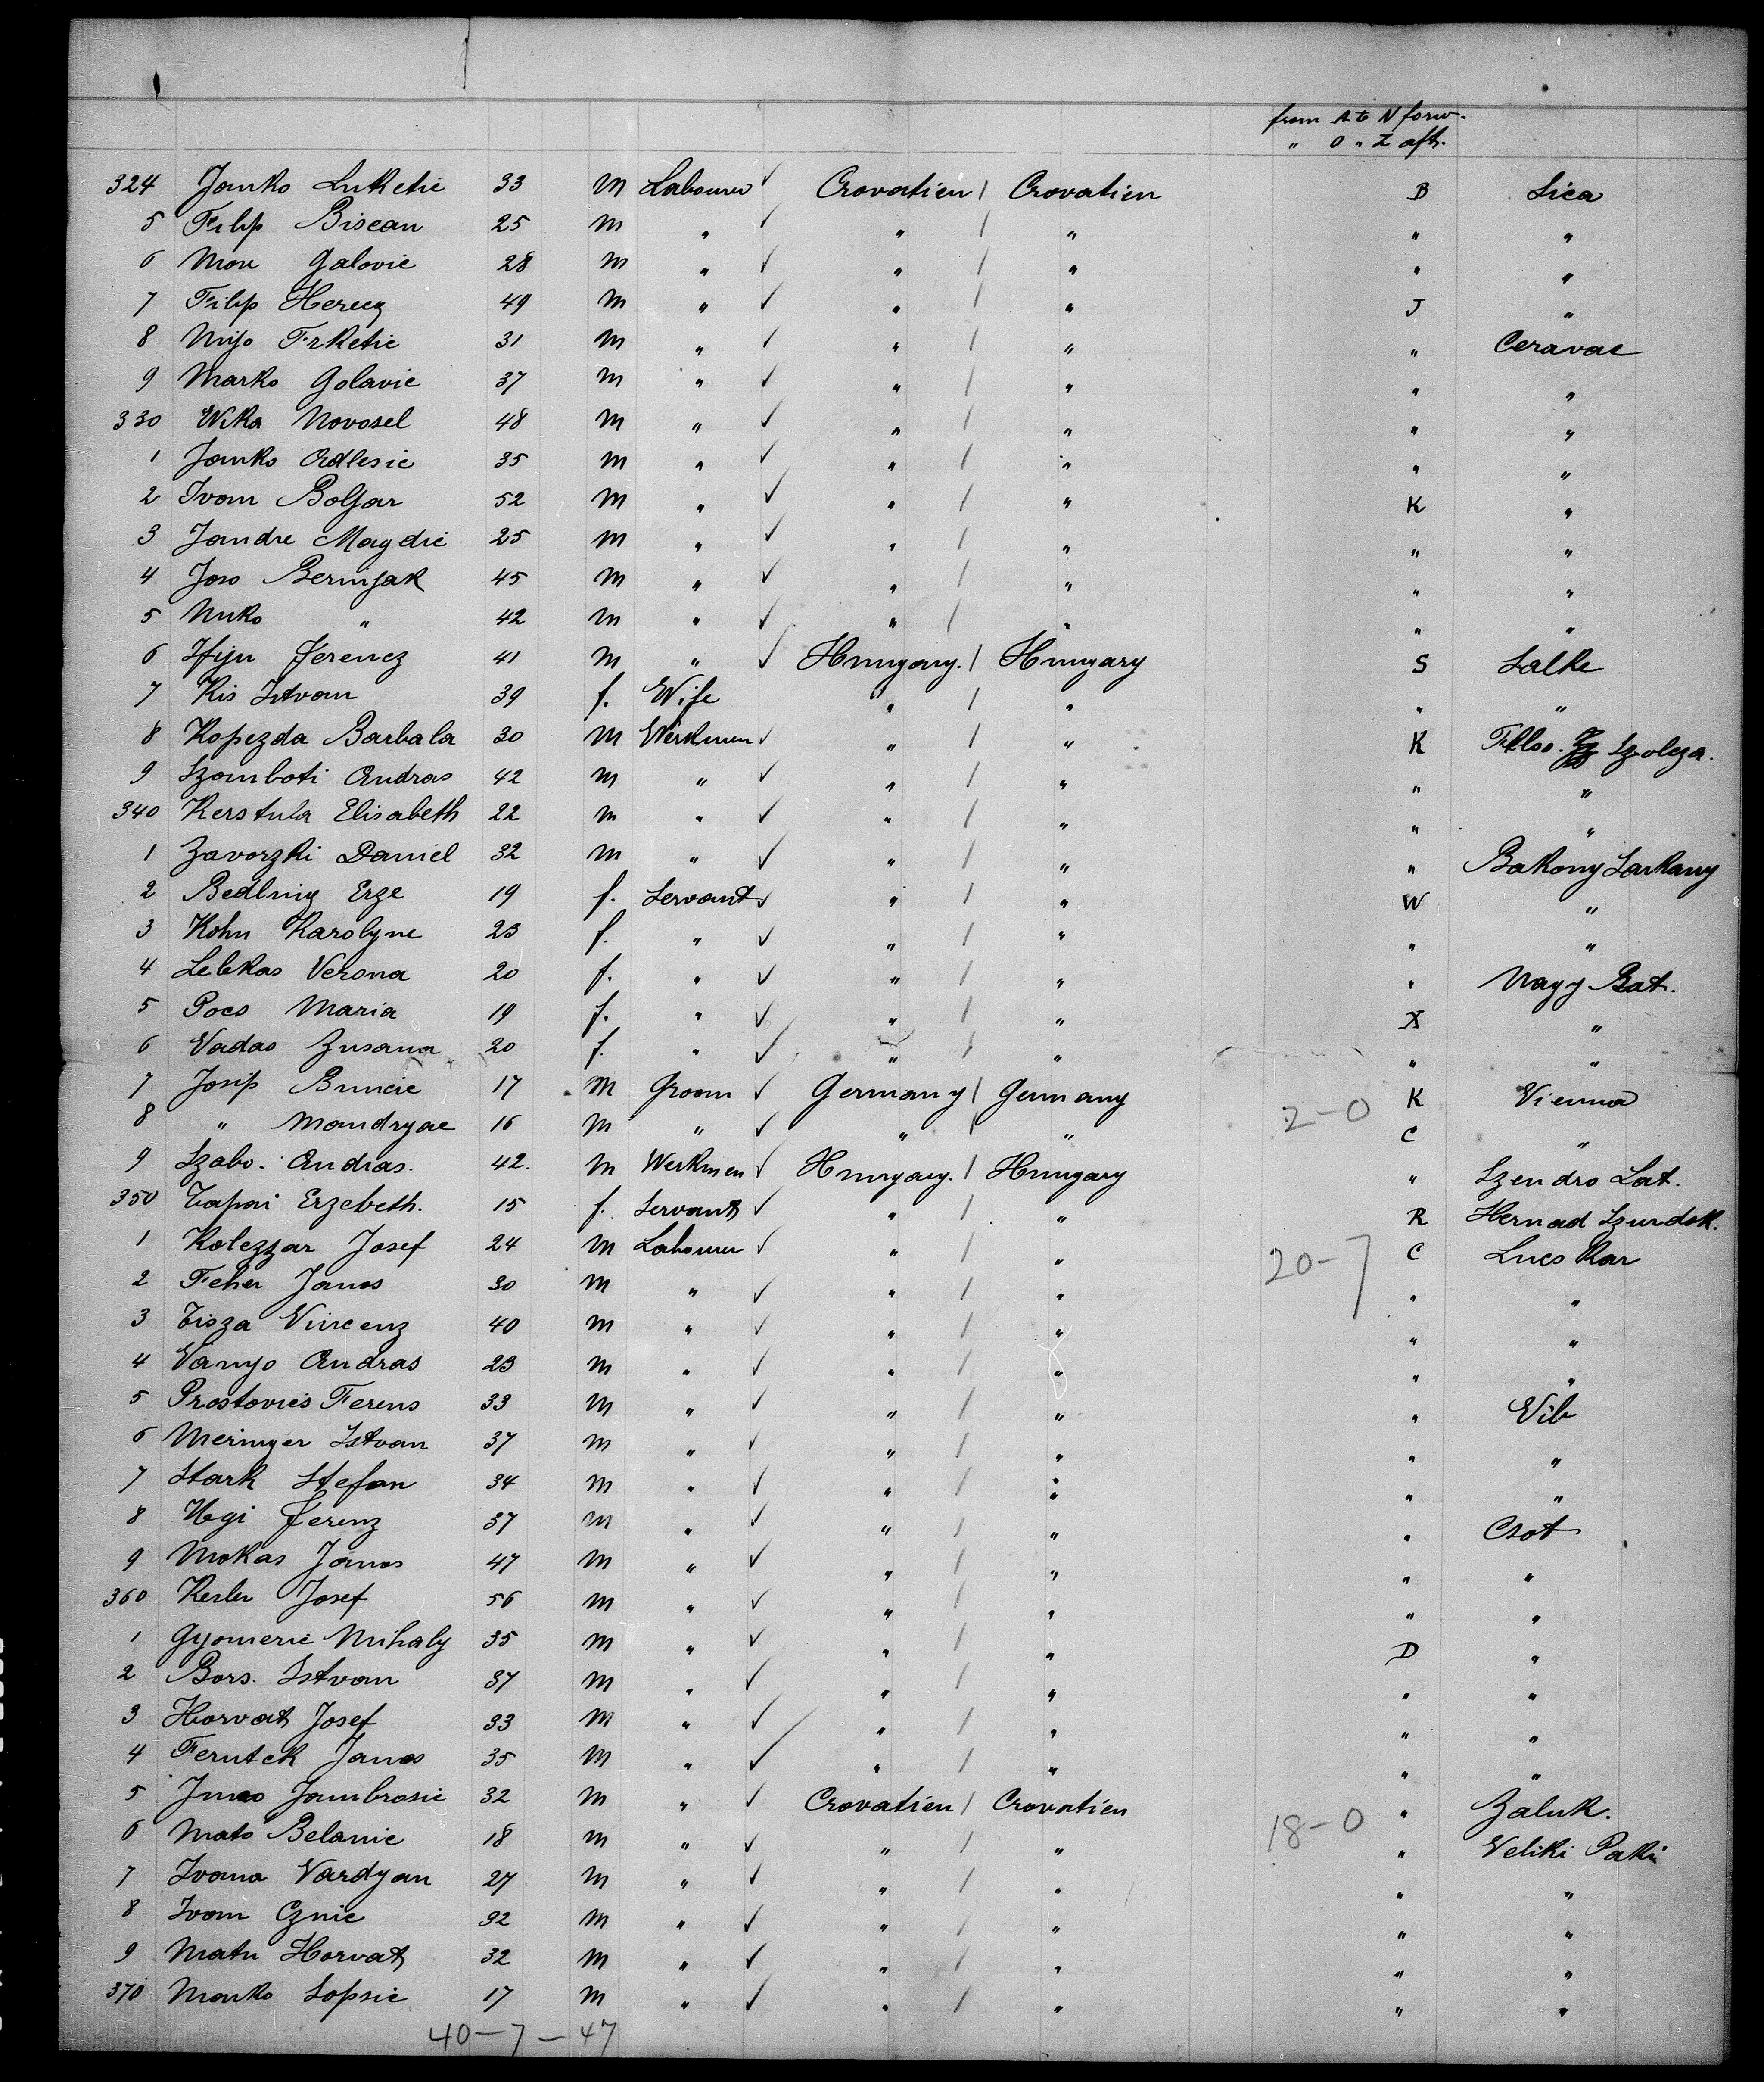 from A to N forw.
" O " Z aft.
324 Janko Luketic 33 m Labourer ✓ Crovatien / Crovatien B Sica
5 Filip Biscan 25 m " ✓ " / " " "
6 Galovic 28 m " ✓ " / " " "
7 Filip Herecz 49 m " ✓ " / " J "
8 Mijo Frketic 31 m " ✓ " / " " Ceravac
9 Marko Golavic 37 m " ✓ " / " " "
330 Wika Novosel 48 m " ✓ " / " " "
1 Janko Odlesic 35 m " ✓ " / " " "
2 Ivan Boljar 52 m " ✓ " / " K "
3 Jandre Magdic 25 m " ✓ " / " " "
4 Joso Berinjak 45 m " ✓ " / " " "
5 Miko " 42 m " ✓ " / " " "
6 Ifju Ferencz 41 m " ✓ Hungary. / Hungary S Salke
7 Kis Istvan 39 f. Wife " / " " "
8 Kopezda Barbala 30 m Werkmen ✓ " / " K Szolcza.
9 Szomboti Andras 42 m " ✓ " / " " "
340 Kerstula Elisabeth 22 m " ✓ " / " " "
1 Zavorzki Daniel 32 m " ✓ " / " " Bakony Sarkany
2 Bedlnig Erze 19 f. Servant ✓ " / " W "
3 Kohn Karolyne 23 f. " ✓ " / " " "
4 Lelekas Verona 20 f. " ✓ " / " " Nagy Bat.
5 Pocs Maria 19 f. " ✓ " / " X "
6 Vadas Zusana 20 f. " ✓ " / " " "
7 Josip Buncic 17 m Groom ✓ Germany / Germany K Vienna
8 " Mandryac 16 m " ✓ " / " 2-0 C "
9 Szabo. Andras. 42. m Werkmen ✓ Hungary. / Hungary " Szendro Lat.
350 Tapai Erzebeth. 15 f. Servant ✓ " / " R Hernad Szurdok.
1 Kolezzar Josef 24 m Labourer ✓ " / " 20-7 C Lucs Kar
2 Feher Janos 30 m " ✓ " / " " "
3 Tisza Vincenz 40 m " ✓ " / " " "
4 Vanyo Andras 23 m " ✓ " / " " "
5 Prostovics Ferens 33 m " ✓ " / " " Vib
6 Meringer Istvan 37 m " ✓ " / " " "
7 Stark Stefan 34 m " ✓ " / " " "
8 Ugi Ferenz 37 m " ✓ " / " " Csot
9 Mokas Janos 47 m " ✓ " / " " "
360 Kesler Josef 56 m " ✓ " / " " "
1 Gyomerie Mihaly 35 m " ✓ " / " D "
2 Bors. Istvan 37 m " ✓ " / " " "
3 Horvath Josef 33 m " ✓ " / " " "
4 Ferutek Janos 35 m " ✓ " / " " "
5 Jambrosic 32 m " ✓ Crovatien / Crovatien 18-0 " Zaluk.
6 Mato Belanic 18 m " ✓ " / " " Veliki
7 Ivana Vardyan 27 m " ✓ " / " " "
8 Ivan Cznic 32 m " ✓ " / " " "
9 Horvath 32 m " ✓ " / " " "
370 Marko Sopsic 17 m " ✓ " / " " "
40-7-47